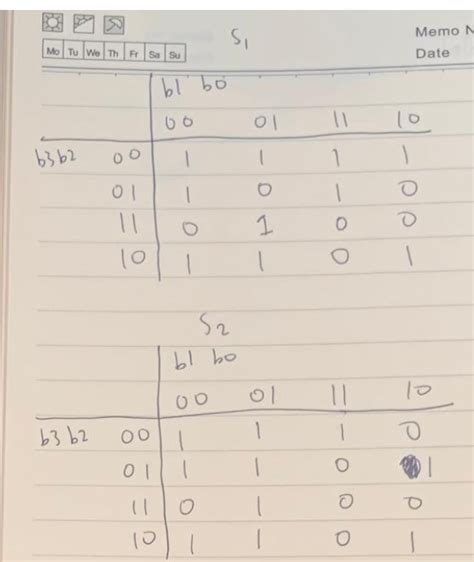 S1
Memo N
Mo Tu We Th Fr Sa Su
Date
b1 b0
00 01 11 10
b3b2 00 1 1 1 1
01 1 0 1 0
11 0 1 0 0
10 1 1 0 1
S2
b1 b0
00 01 11 10
b3 b2 00 1 1 1 0
01 1 1 0 1
11 0 1 0 0
10 1 1 0 1